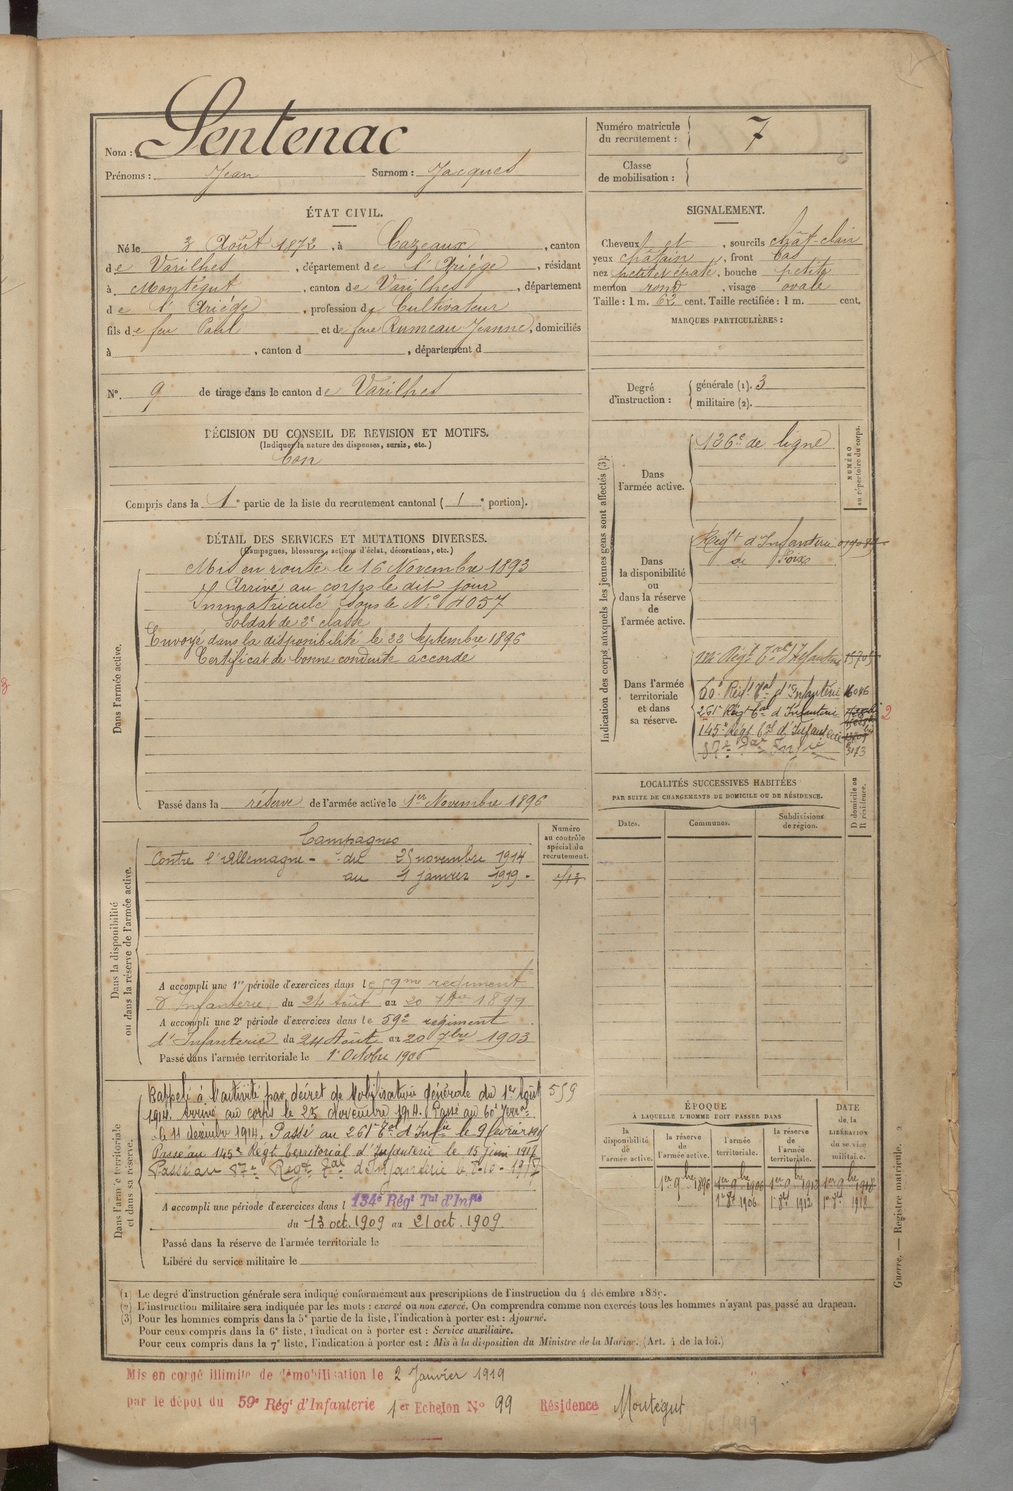 Nom : Sentenac
Prénoms : Jean Surnom : Jacques
Numéro matricule du recrutement : 7
Classe de mobilisation :
ÉTAT CIVIL.
Né le 3 Août 1873, à Cazeaux, canton
de Varilhes, département de l'Ariége, résidant
à Montégut, canton de Varilhes, département
de l'Ariége, profession de Cultivateur
fils de feu Paul et de feue Rumeau Jeanne, domiciliés
à , canton d , département d
N°. 9 de tirage dans le canton de Varilhes
SIGNALEMENT.
Cheveux et , sourcils chât-clair
yeux châtain, front bas
nez petit épaté, bouche petite
menton rond, visage ovale
Taille : 1 m. 62 cent. Taille rectifiée : 1 m. cent.
MARQUES PARTICULIÈRES :
Degré d'instruction : générale (1). 3
militaire (2).
DÉCISION DU CONSEIL DE REVISION ET MOTIFS.
(Indiquer la nature des dispenses, sursis, etc.)
Bon
Compris dans la 1e partie de la liste du recrutement cantonal (1e portion).
DÉTAIL DES SERVICES ET MUTATIONS DIVERSES.
(Campagnes, blessures, actions d'éclat, décorations, etc.)
Dans l'armée active.
Mis en route le 16 Novembre 1893
Arrivé au corps le dit jour
Immatriculé sous le N°
Soldat de 2e classe
Envoyé dans la disponibilité le 22 Septembre 1896
Certificat de bonne conduite accordé
Passé dans la réserve de l'armée active le 1er Novembre 1896
Indication des corps auxquels les jeunes gens sont affectés (3).
NUMÉRO au répertoire du corps.
Dans l'armée active.
126e de ligne
Dans la disponibilité ou dans la réserve de l'armée active.
Régt d'Infanterie
de Foix
Dans l'armée territoriale et dans sa réserve.
Régt Tal d'Infanterie
60e Régt Tal d'Infanterie 16046
261e Régt Tal d'Infanterie
2
145e Régt Tal d'Infanterie
87e
3173
LOCALITÉS SUCCESSIVES HABITÉES
PAR SUITE DE CHANGEMENTS DE DOMICILE OU DE RÉSIDENCE.
Dates. Communes. Subdivisions de région. D domicile ou R résidence.
Dans la disponibilité ou dans la réserve de l'armée active.
Numéro au contrôle spécial du recrutement.
Campagnes
Contre l'Allemagne - du 25 novembre 1914
au 1 janvier 1919.
A accompli une 1re période d'exercices dans le 59me régiment
d'Infanterie du 24 Août au 20 7bre 1899
A accompli une 2e période d'exercices dans le 59e régiment
d'Infanterie du 24 Août au 20 7bre 1903
Passé dans l'armée territoriale le 1er Octobre 1906
Dans l'armée territoriale et dans sa réserve.
Rappelé à l'activité par décret de Mobilisation générale du 1er Août 559
1914. Arrivé au corps le 25 Novembre 1914. Passé au 60e Terral
le 11 décembre 1914. Passé au 261e Tal d'Infie le 9 février
Passé au 145e Régt Territorial d'Infanterie le 15 Juin 1917
Passé au 87e Régt Tal d'Infanterie le
A accompli une période d'exercices dans l 134e Régt Tal d'Infie
du 13 oct. 1909 au 21 oct. 1909
Passé dans la réserve de l'armée territoriale le
Libéré du service militaire le
ÉPOQUE
À LAQUELLE L'HOMME DOIT PASSER DANS
la disponibilité de l'armée active. la réserve de l'armée active. l'armée territoriale. la réserve de l'armée territoriale.
DATE de la LIBÉRATION du service militaire.
1er 9bre 1896 1er 9bre 1906 1er 9bre 1912 1er 9bre 1918
1er 8bre 1906 1er 8bre 1912 1er 8bre 1918
Guerre. — Registre matricule.
(1) Le degré d'instruction générale sera indiqué conformément aux prescriptions de l'instruction du 4 décembre 1889.
(2) L'instruction militaire sera indiquée par les mots : exercé ou non exercé. On comprendra comme non exercés tous les hommes n'ayant pas passé au drapeau.
(3) Pour les hommes compris dans la 5e partie de la liste, l'indication à porter est : Ajourné.
Pour ceux compris dans la 6e liste, l'indication à porter est : Service auxiliaire.
Pour ceux compris dans la 7e liste, l'indication à porter est : Mis à la disposition du Ministre de la Marine. (Art. 4 de la loi.)
Mis en congé illimité de démobilisation le 2 Janvier 1919
par le dépôt du 59e Régt d'Infanterie 1er Echelon N° 99 Résidence Montégut